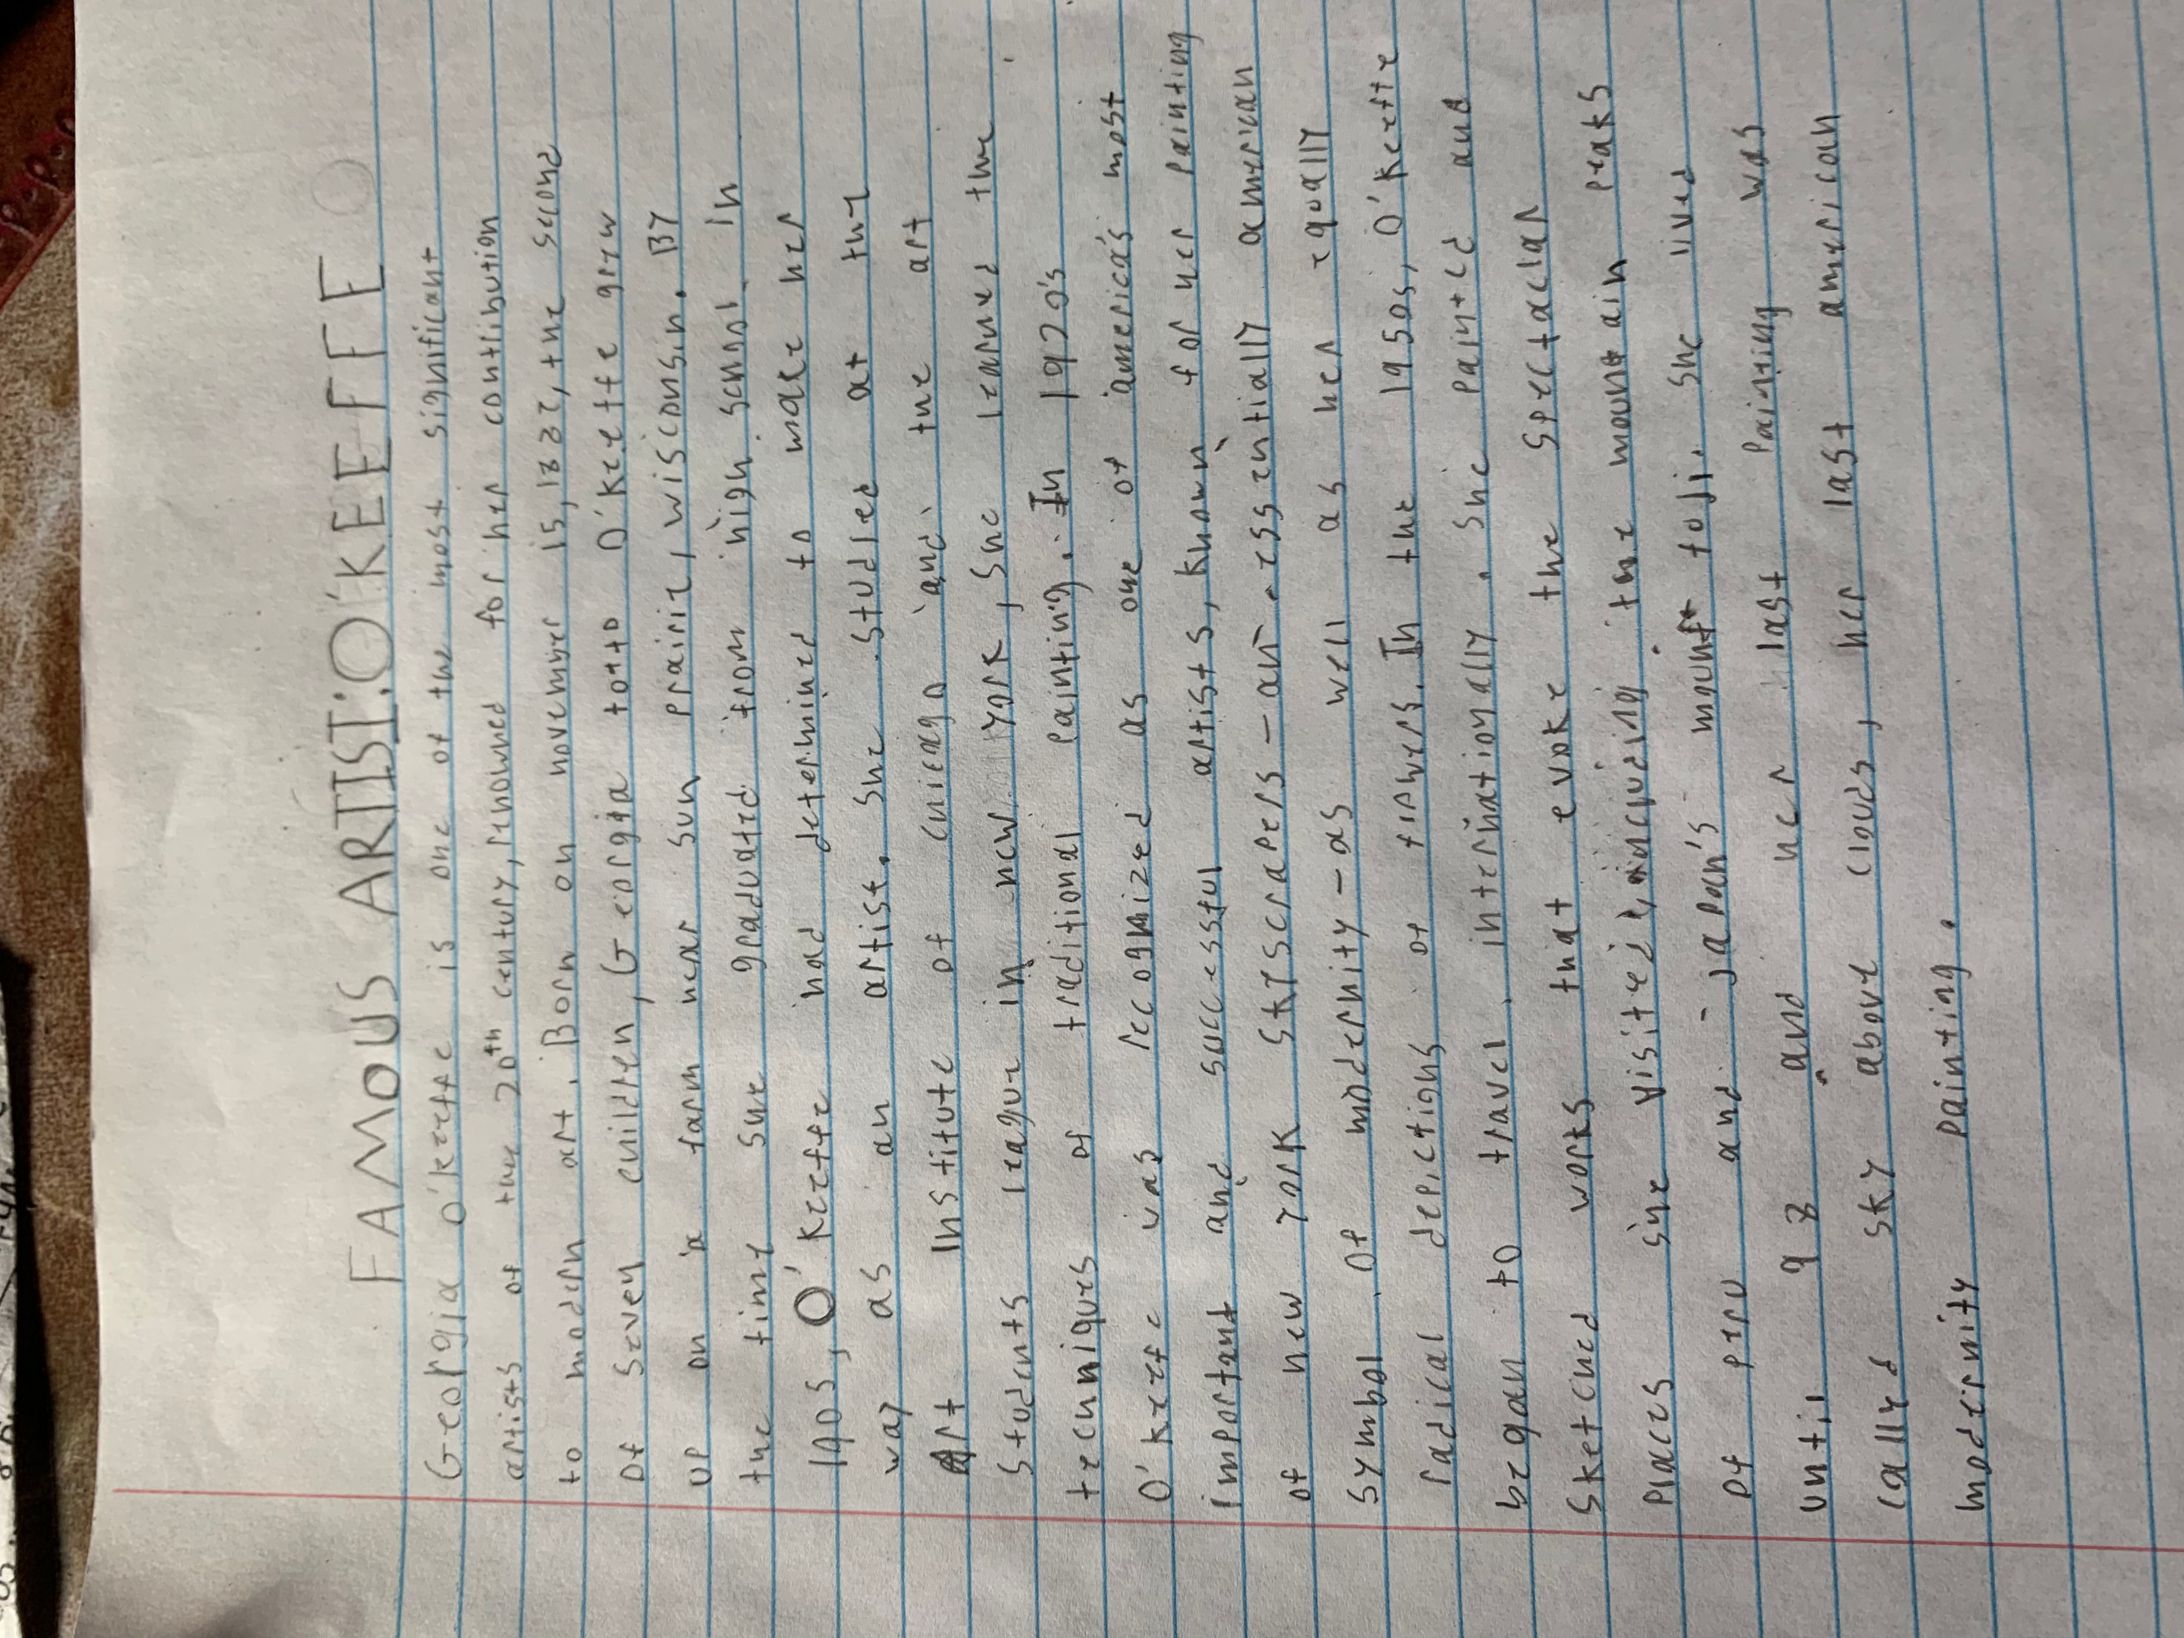 FAMOUS ARTIST: O'KEEFFE
Georgia O'keeffe is one of the most significant
artists of the 20th century, renowned for her contribution
to modern art. Born on november 15, 1887, the second
of seven children, Georgia totto O'keeffe grew
up on a farm near sun prairie, wisconsin. By
the time she graduated from high school in
1905, O'keeffe had determined to make her
way as an artist. She studied at the
Art Institute of chicago and the art
students league in new york, she learned the
techniques of traditional painting. In 1920's
O'keeffe was recognized as one of america's most
important and successful artists, known for her painting
of new york skyscrapers - an essentially american
symbol of modernity - as well as her equally
radical depictions of flowers. In the 1950s, O'keeffe
began to travel internationally. She painted and
sketched works that evoke the spectaclar
places she visited, including the mountain peaks
of peru and japan's mount fuji. She lived
until 98 and her last painting was
called sky above clouds, her last american
modernity painting.